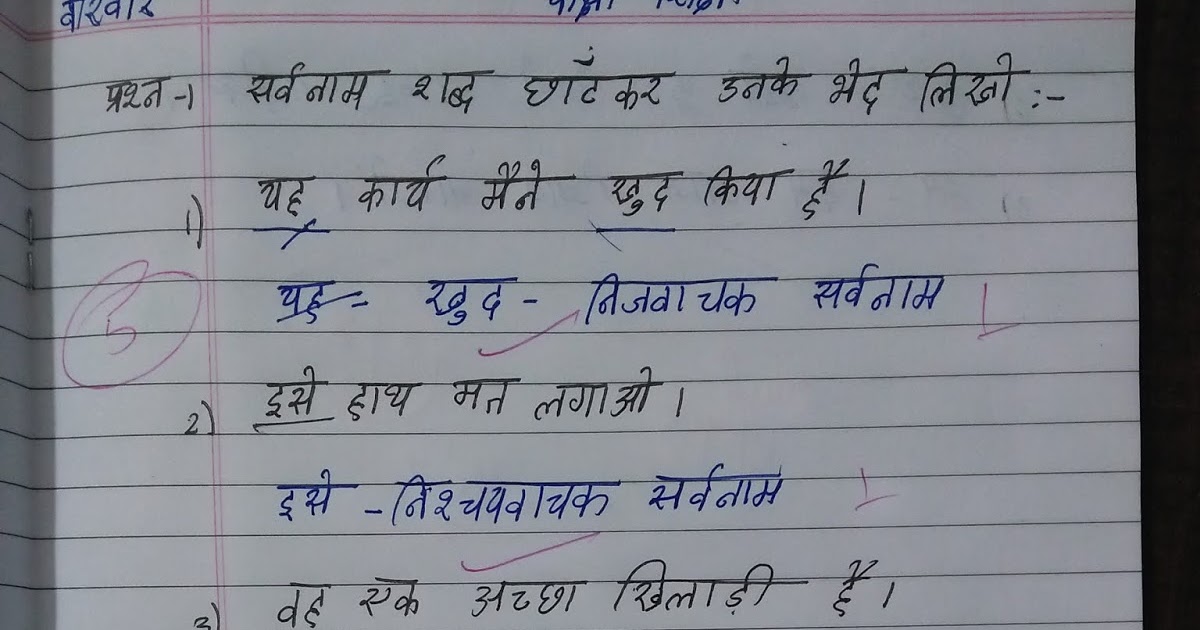 प्रश्न-1 सर्वनाम शब्द छांटकर उनके भेद लिखो :-
1) यह कार्य मैंने खुद किया है।
यह= खुद - निजवाचक सर्वनाम 1
2) इसे हाथ मत लगाओ।
इसे - निश्चयवाचक सर्वनाम 1
3) वह एक अच्छा खिलाड़ी है।